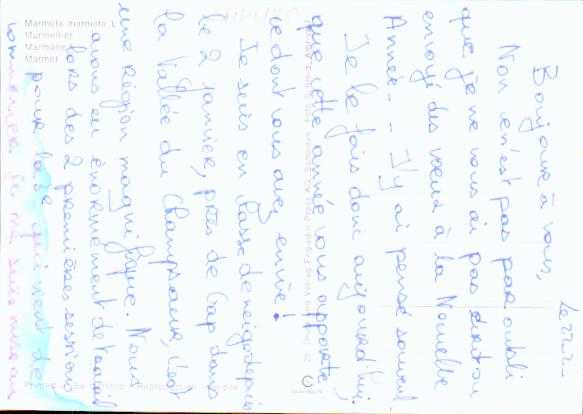 Le 22/1..
Bonjour à vous,
Non ce n'est pas par oubli
que je ne vous ai pas écrit ou
envoyé des vœux à la Nouvelle
Année... J'y ai pensé souvent.
Je le fais donc aujourd'hui;
que cette année vous apporte
ce dont vous avez envie!
Je suis en classe de neige depuis
le 2 janvier, près de Gap dans
la Vallée du Champsaur, c'est
une Région magnifique. Nous
avons eu énormément de travail
lors des 2 premières sessions
pour la 3e qui vient de
commencer je me suis mise au
Marmota marmota L.
Murmeltier
Marmotte
Marmot
Druck und Verlag Engadin Press AG, Samedan - Foto Schmid, Amsteg
Printed in Switzerland - Reproduction interdite